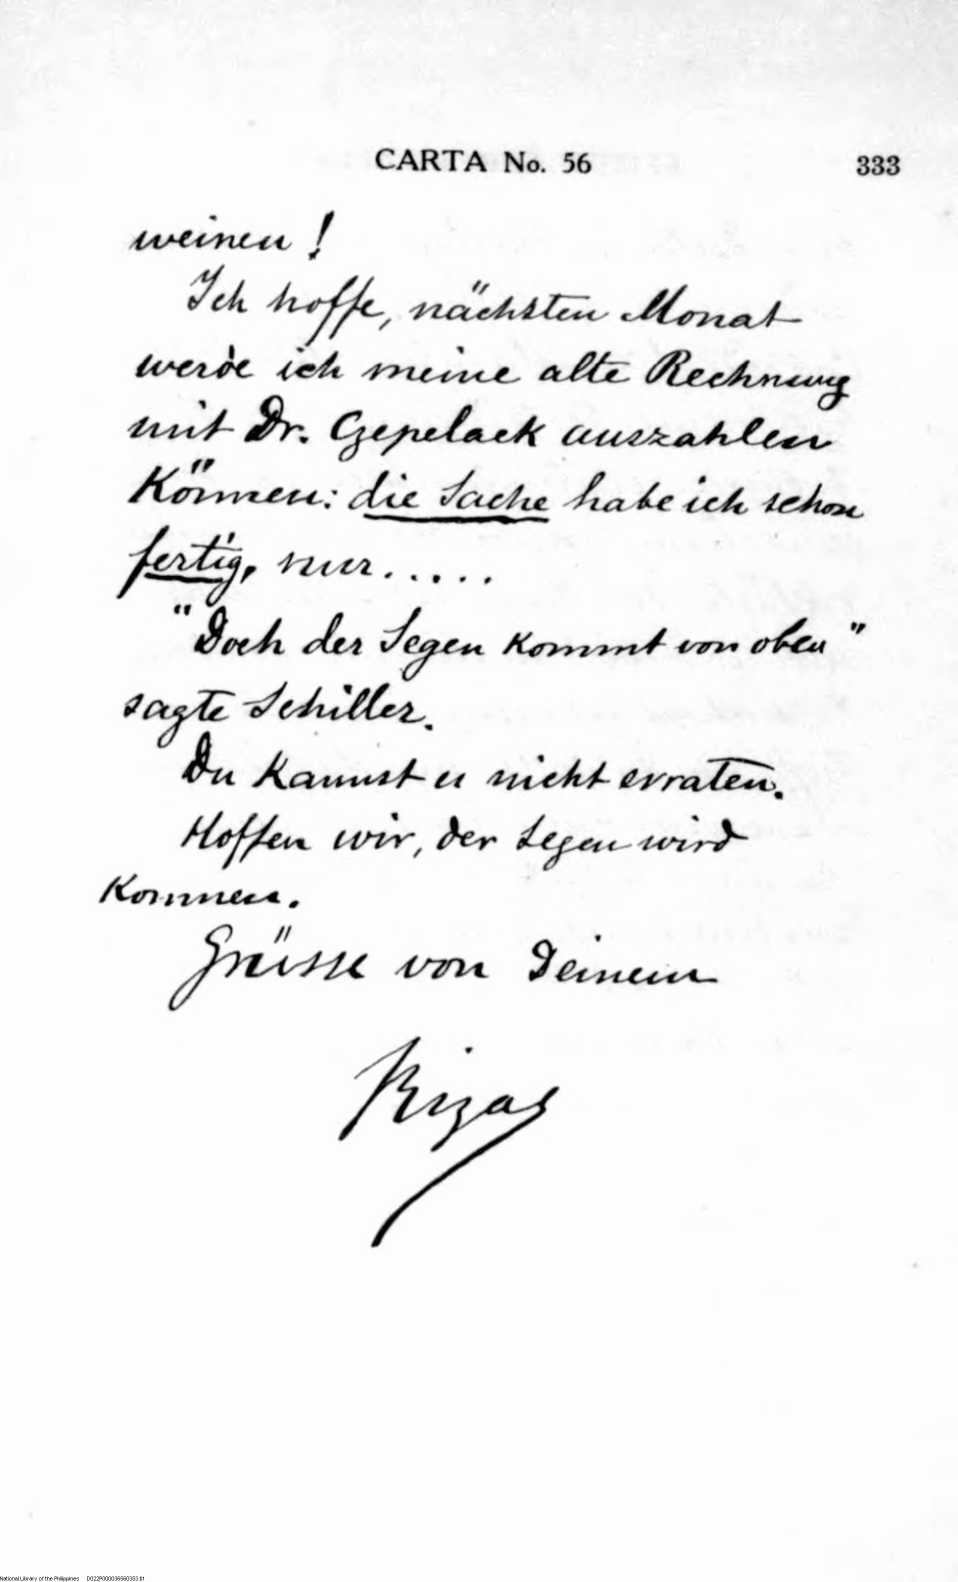 CARTA No. 56 333
weinen!
Ich hoffe, nächsten Monat
werde ich meine alte Rechnung
mit Dr. Czepelack auszahlen
Können: die Sache habe ich schon
fertig, nur.....
"Doch der Segen kommt von oben"
sagte Schiller.
Du kannst es nicht erraten.
Hoffen wir, der Segen wird
kommen.
Grüsse von Deinem
Rizal
National Library of the Philippines